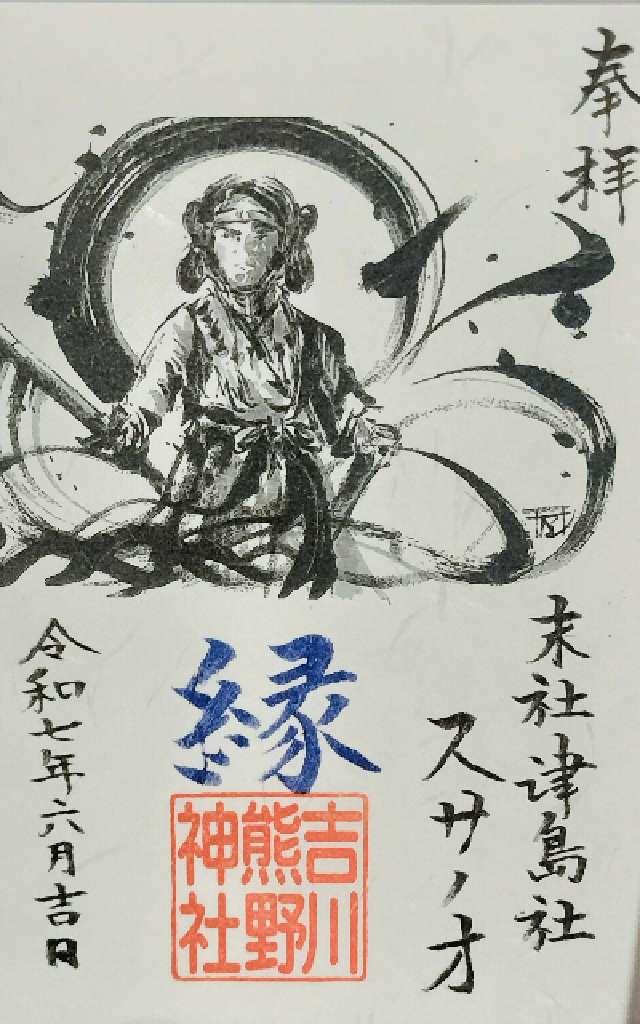 奉拝
末社津島社
スサノオ
縁
吉川
熊野
神社
令和七年六月吉日